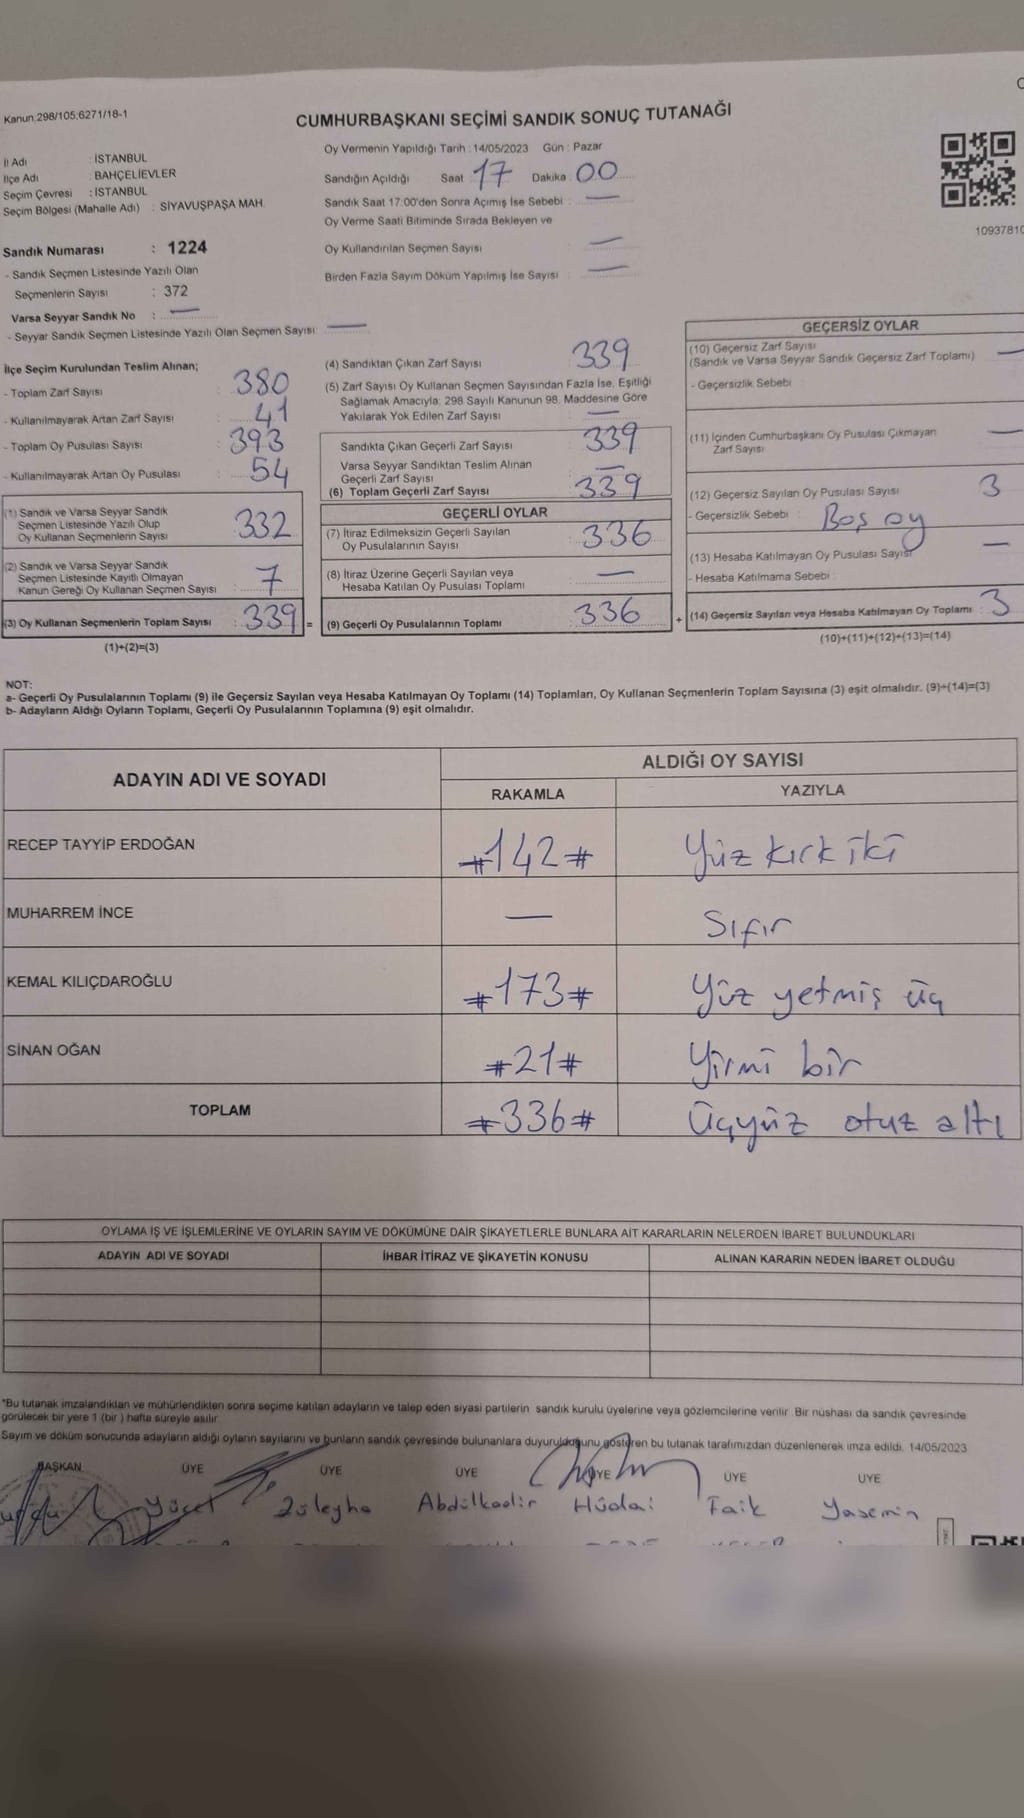 Kanun,298/105;6271/18-1
CUMHURBAŞKANI SEÇİMİ SANDIK SONUÇ TUTANAĞI
İl Adı : İSTANBUL
İlçe Adı : BAHÇELİEVLER
Seçim Çevresi : İSTANBUL
Seçim Bölgesi (Mahalle Adı) : SİYAVUŞPAŞA MAH.
Oy Vermenin Yapıldığı Tarih : 14/05/2023 Gün : Pazar
Sandığın Açıldığı Saat : 17 Dakika : 00
Sandık Saat 17:00'den Sonra Açımış İse Sebebi : —
Oy Verme Saati Bitiminde Sırada Bekleyen ve
Oy Kullandırılan Seçmen Sayısı : —
Birden Fazla Sayım Döküm Yapılmış İse Sayısı : —
1093781
Sandık Numarası : 1224
- Sandık Seçmen Listesinde Yazılı Olan
Seçmenlerin Sayısı : 372
Varsa Seyyar Sandık No : —
- Seyyar Sandık Seçmen Listesinde Yazılı Olan Seçmen Sayısı: —
İlçe Seçim Kurulundan Teslim Alınan;
- Toplam Zarf Sayısı : 380
- Kullanılmayarak Artan Zarf Sayısı : 41
- Toplam Oy Pusulası Sayısı : 393
- Kullanılmayarak Artan Oy Pusulası : 54
(1) Sandık ve Varsa Seyyar Sandık
Seçmen Listesinde Yazılı Olup
Oy Kullanan Seçmenlerin Sayısı : 332
(2) Sandık ve Varsa Seyyar Sandık
Seçmen Listesinde Kayıtlı Olmayan
Kanun Gereği Oy Kullanan Seçmen Sayısı : 7
(3) Oy Kullanan Seçmenlerin Toplam Sayısı : 339 =
(1)+(2)=(3)
(4) Sandıktan Çıkan Zarf Sayısı : 339
(5) Zarf Sayısı Oy Kullanan Seçmen Sayısından Fazla İse, Eşitliği
Sağlamak Amacıyla: 298 Sayılı Kanunun 98. Maddesine Göre
Yakılarak Yok Edilen Zarf Sayısı : —
Sandıkta Çıkan Geçerli Zarf Sayısı : 339
Varsa Seyyar Sandıktan Teslim Alınan
Geçerli Zarf Sayısı : —
(6) Toplam Geçerli Zarf Sayısı : 339
GEÇERLİ OYLAR
(7) İtiraz Edilmeksizin Geçerli Sayılan
Oy Pusulalarının Sayısı : 336
(8) İtiraz Üzerine Geçerli Sayılan veya
Hesaba Katılan Oy Pusulası Toplamı : —
(9) Geçerli Oy Pusulalarının Toplamı : 336 +
GEÇERSİZ OYLAR
(10) Geçersiz Zarf Sayısı
(Sandık ve Varsa Seyyar Sandık Geçersiz Zarf Toplamı) —
- Geçersizlik Sebebi :
(11) İçinden Cumhurbaşkanı Oy Pusulası Çıkmayan
Zarf Sayısı —
(12) Geçersiz Sayılan Oy Pusulası Sayısı 3
- Geçersizlik Sebebi : Boş oy
(13) Hesaba Katılmayan Oy Pusulası Sayısı —
- Hesaba Katılmama Sebebi :
(14) Geçersiz Sayılan veya Hesaba Katılmayan Oy Toplamı : 3
(10)+(11)+(12)+(13)=(14)
NOT:
a- Geçerli Oy Pusulalarının Toplamı (9) ile Geçersiz Sayılan veya Hesaba Katılmayan Oy Toplamı (14) Toplamları, Oy Kullanan Seçmenlerin Toplam Sayısına (3) eşit olmalıdır. (9)+(14)=(3)
b- Adayların Aldığı Oyların Toplamı, Geçerli Oy Pusulalarının Toplamına (9) eşit olmalıdır.
ADAYIN ADI VE SOYADI ALDIĞI OY SAYISI
RAKAMLA YAZIYLA
RECEP TAYYİP ERDOĞAN #142# Yüz kırk iki
MUHARREM İNCE — Sıfır
KEMAL KILIÇDAROĞLU #173# Yüz yetmiş üç
SİNAN OĞAN #21# Yirmi bir
TOPLAM #336# Üçyüz otuz altı
OYLAMA İŞ VE İŞLEMLERİNE VE OYLARIN SAYIM VE DÖKÜMÜNE DAİR ŞİKAYETLERLE BUNLARA AİT KARARLARIN NELERDEN İBARET BULUNDUKLARI
ADAYIN ADI VE SOYADI İHBAR İTİRAZ VE ŞİKAYETİN KONUSU ALINAN KARARIN NEDEN İBARET OLDUĞU
*Bu tutanak imzalandıktan ve mühürlendikten sonra seçime katılan adayların ve talep eden siyasi partilerin sandık kurulu üyelerine veya gözlemcilerine verilir. Bir nüshası da sandık çevresinde
görülecek bir yere 1 (bir) hafta süreyle asılır.
Sayım ve döküm sonucunda adayların aldığı oyların sayılarını ve bunların sandık çevresinde bulunanlara duyurulduğunu gösteren bu tutanak tarafımızdan düzenlenerek imza edildi. 14/05/2023
BAŞKAN ÜYE ÜYE ÜYE ÜYE ÜYE ÜYE
Yücel Züleyha Abdülkadir Hüdai Faik Yasemin